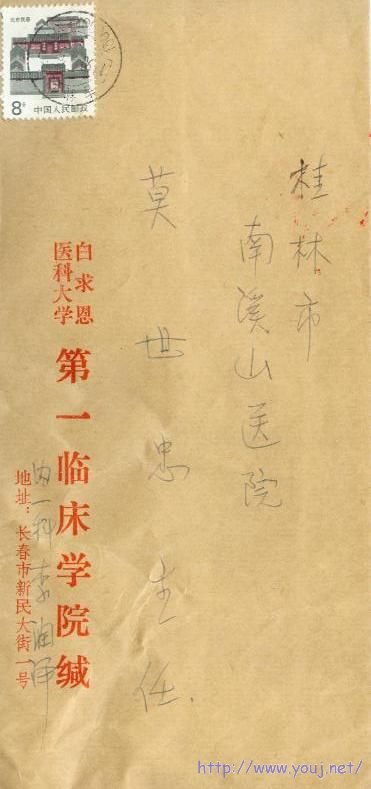 北京民居
8分
中国人民邮政
桂林市
南溪山医院
莫世忠主任
白求恩
医科大学
第一临床学院缄
内一科李润泽
地址：长春市新民大街一号
http://www.youj.net/